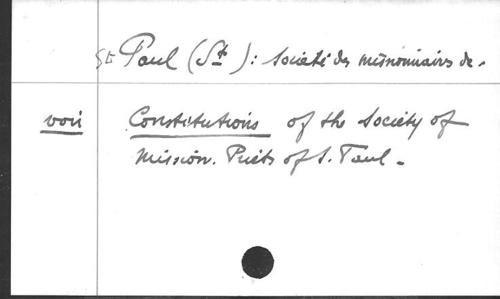 St Paul (St) : Société des missionnaires de.
voir Constitutions of the Society of
Mission. Priests of S. Paul.